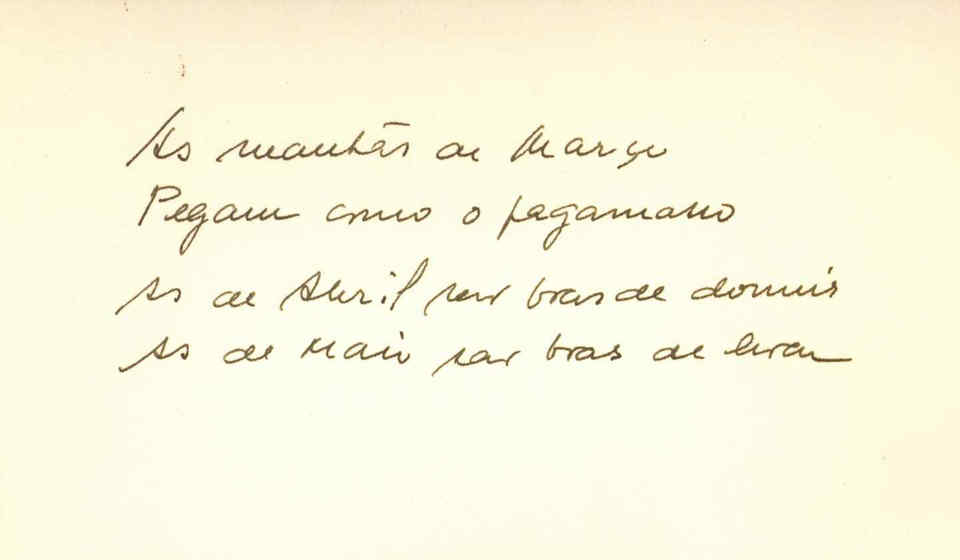 As manhãs de Março
Pegam como o pegamasso
As de Abril são bras de dormir
As de Maio são bras de